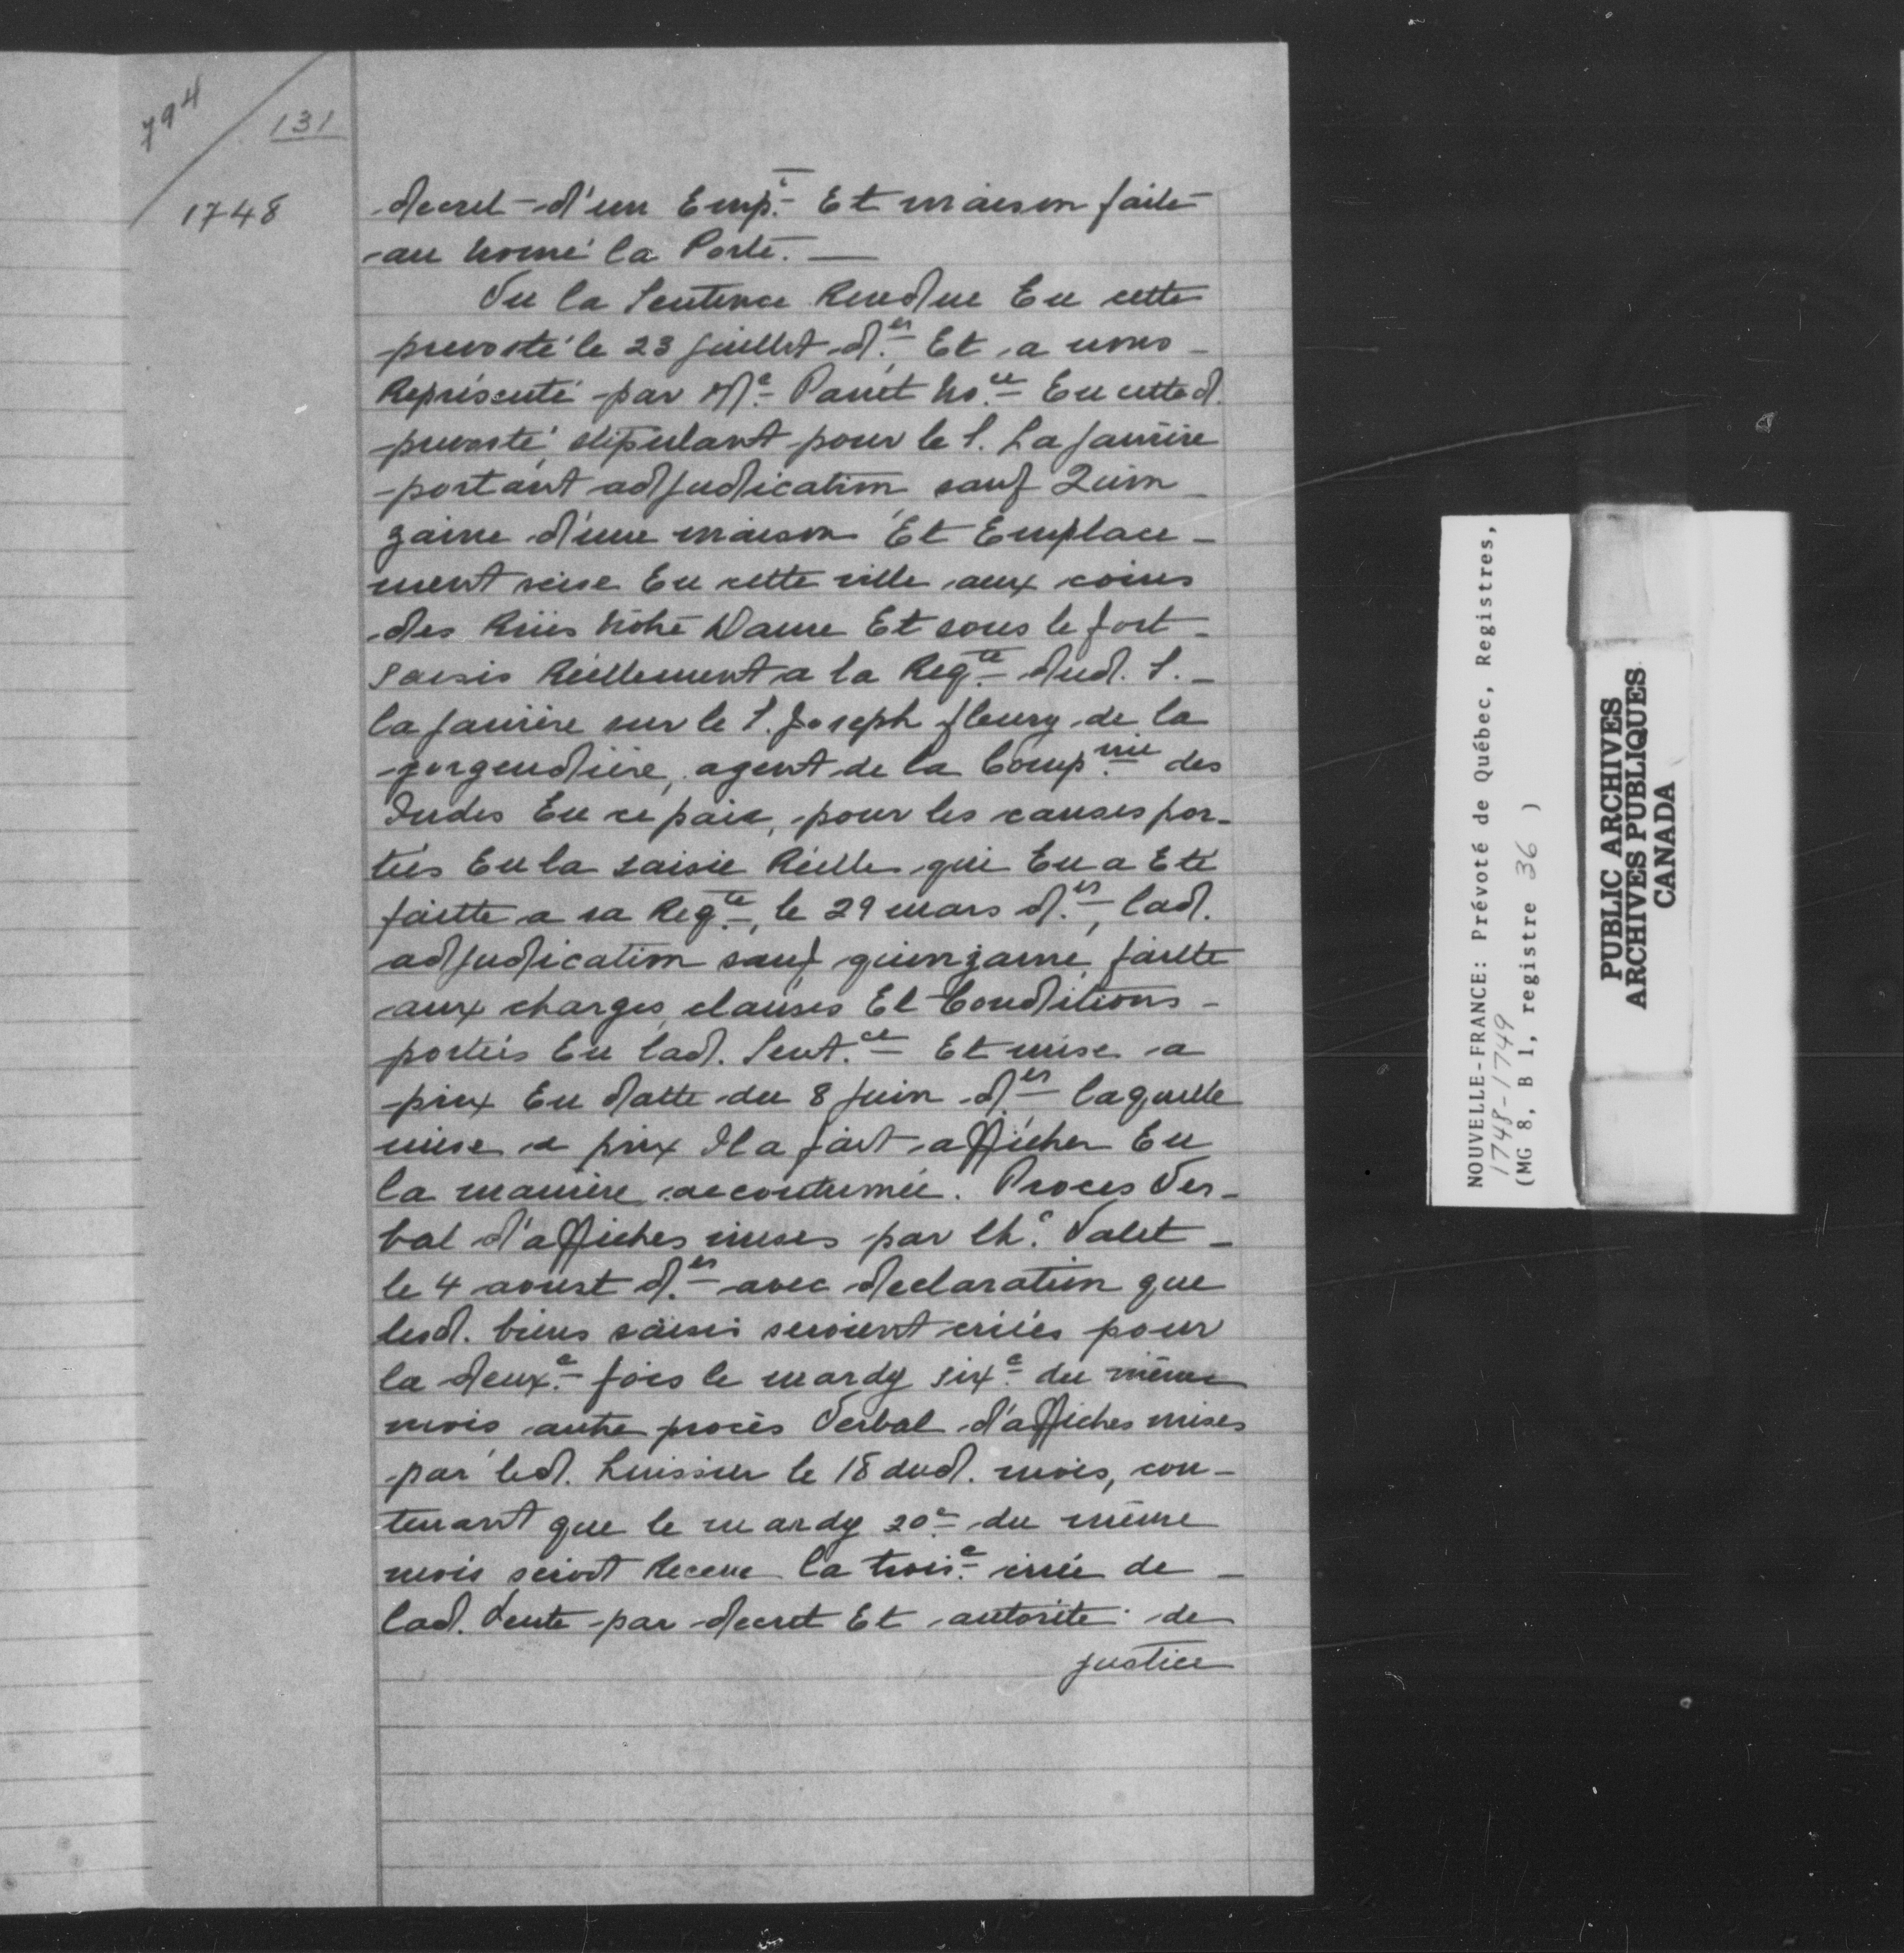 794
131
1748
decret d'un Emp.t Et maison faite
au nomé la Porte. —
Vu la Sentence Rendue En cette
prevosté le 23 juillet d.er Et a nous
Représenté par Me Panet no.re En cette d.
prevosté, stipulant pour le S. La Janière
portant adjudication sauf Quin-
zaine d'une maison Et Emplace-
ment seise En cette ville aux coins
des Rües nôtre Dame Et sous le fort
saisis Réellement a la Reqte dud. S.
la Janière sur le S. Joseph fleury de la
gorgendière, agent de la Comp.nie des
Indes En ce païs, pour les causes por-
tées En la saisie Réelle qui En a Eté
faitte a sa Reqte, le 29 mars d.er, lad.
adjudication sauf quinzaine faitte
aux charges, clauses Et Conditions
portées En lad. Sent.ce Et mise a
prix En datte du 8 juin d.er laquelle
mise a prix Il a fait afficher En
la manière accoutumée. Proces Ver-
bal d'affiches mises par Ch.e Valet
le 4 aoust d.er avec declaration que
lesd. biens saisis seroient criées pour
la deux.e fois le mardy six.e du même
mois autre procès Verbal d'affiches mises
par led. huissier le 18 dud. mois, con-
tenant que le mardy 20e du même
mois seroit Receue la trois.e criée de
lad. Vente par decret Et autorité de
justice
NOUVELLE-FRANCE: Prévoté de Québec, Registres,
1748-1749
(MG 8, B 1, registre 36 )
PUBLIC ARCHIVES
ARCHIVES PUBLIQUES
CANADA